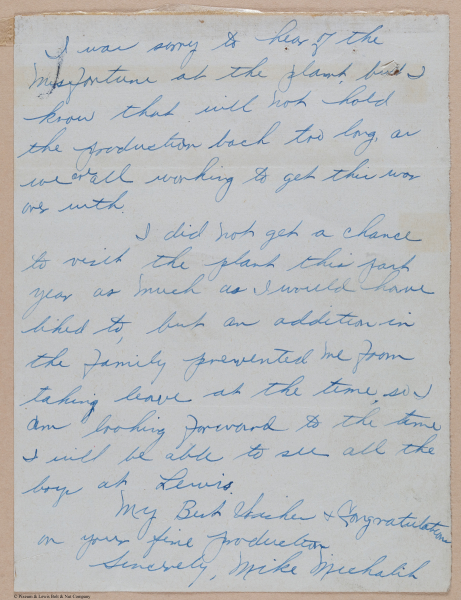 I was sorry to hear of the
Missfortune at the plant, but I
know that will not hold
the production back too long, as
we are all working to get this war
over with.
I did not get a chance
to visit the plant this past
year as much as I would have
liked to, but an addition in
the family prevented me from
taking leave at the time, so I
am looking forward to the time
I will be able to see all the
boys at Lewis.
My Best Wishes & Congratulations
on your fine production
Sincerely, Mike Michalik
© Pheenix & Lewis Bolt & Nut Company